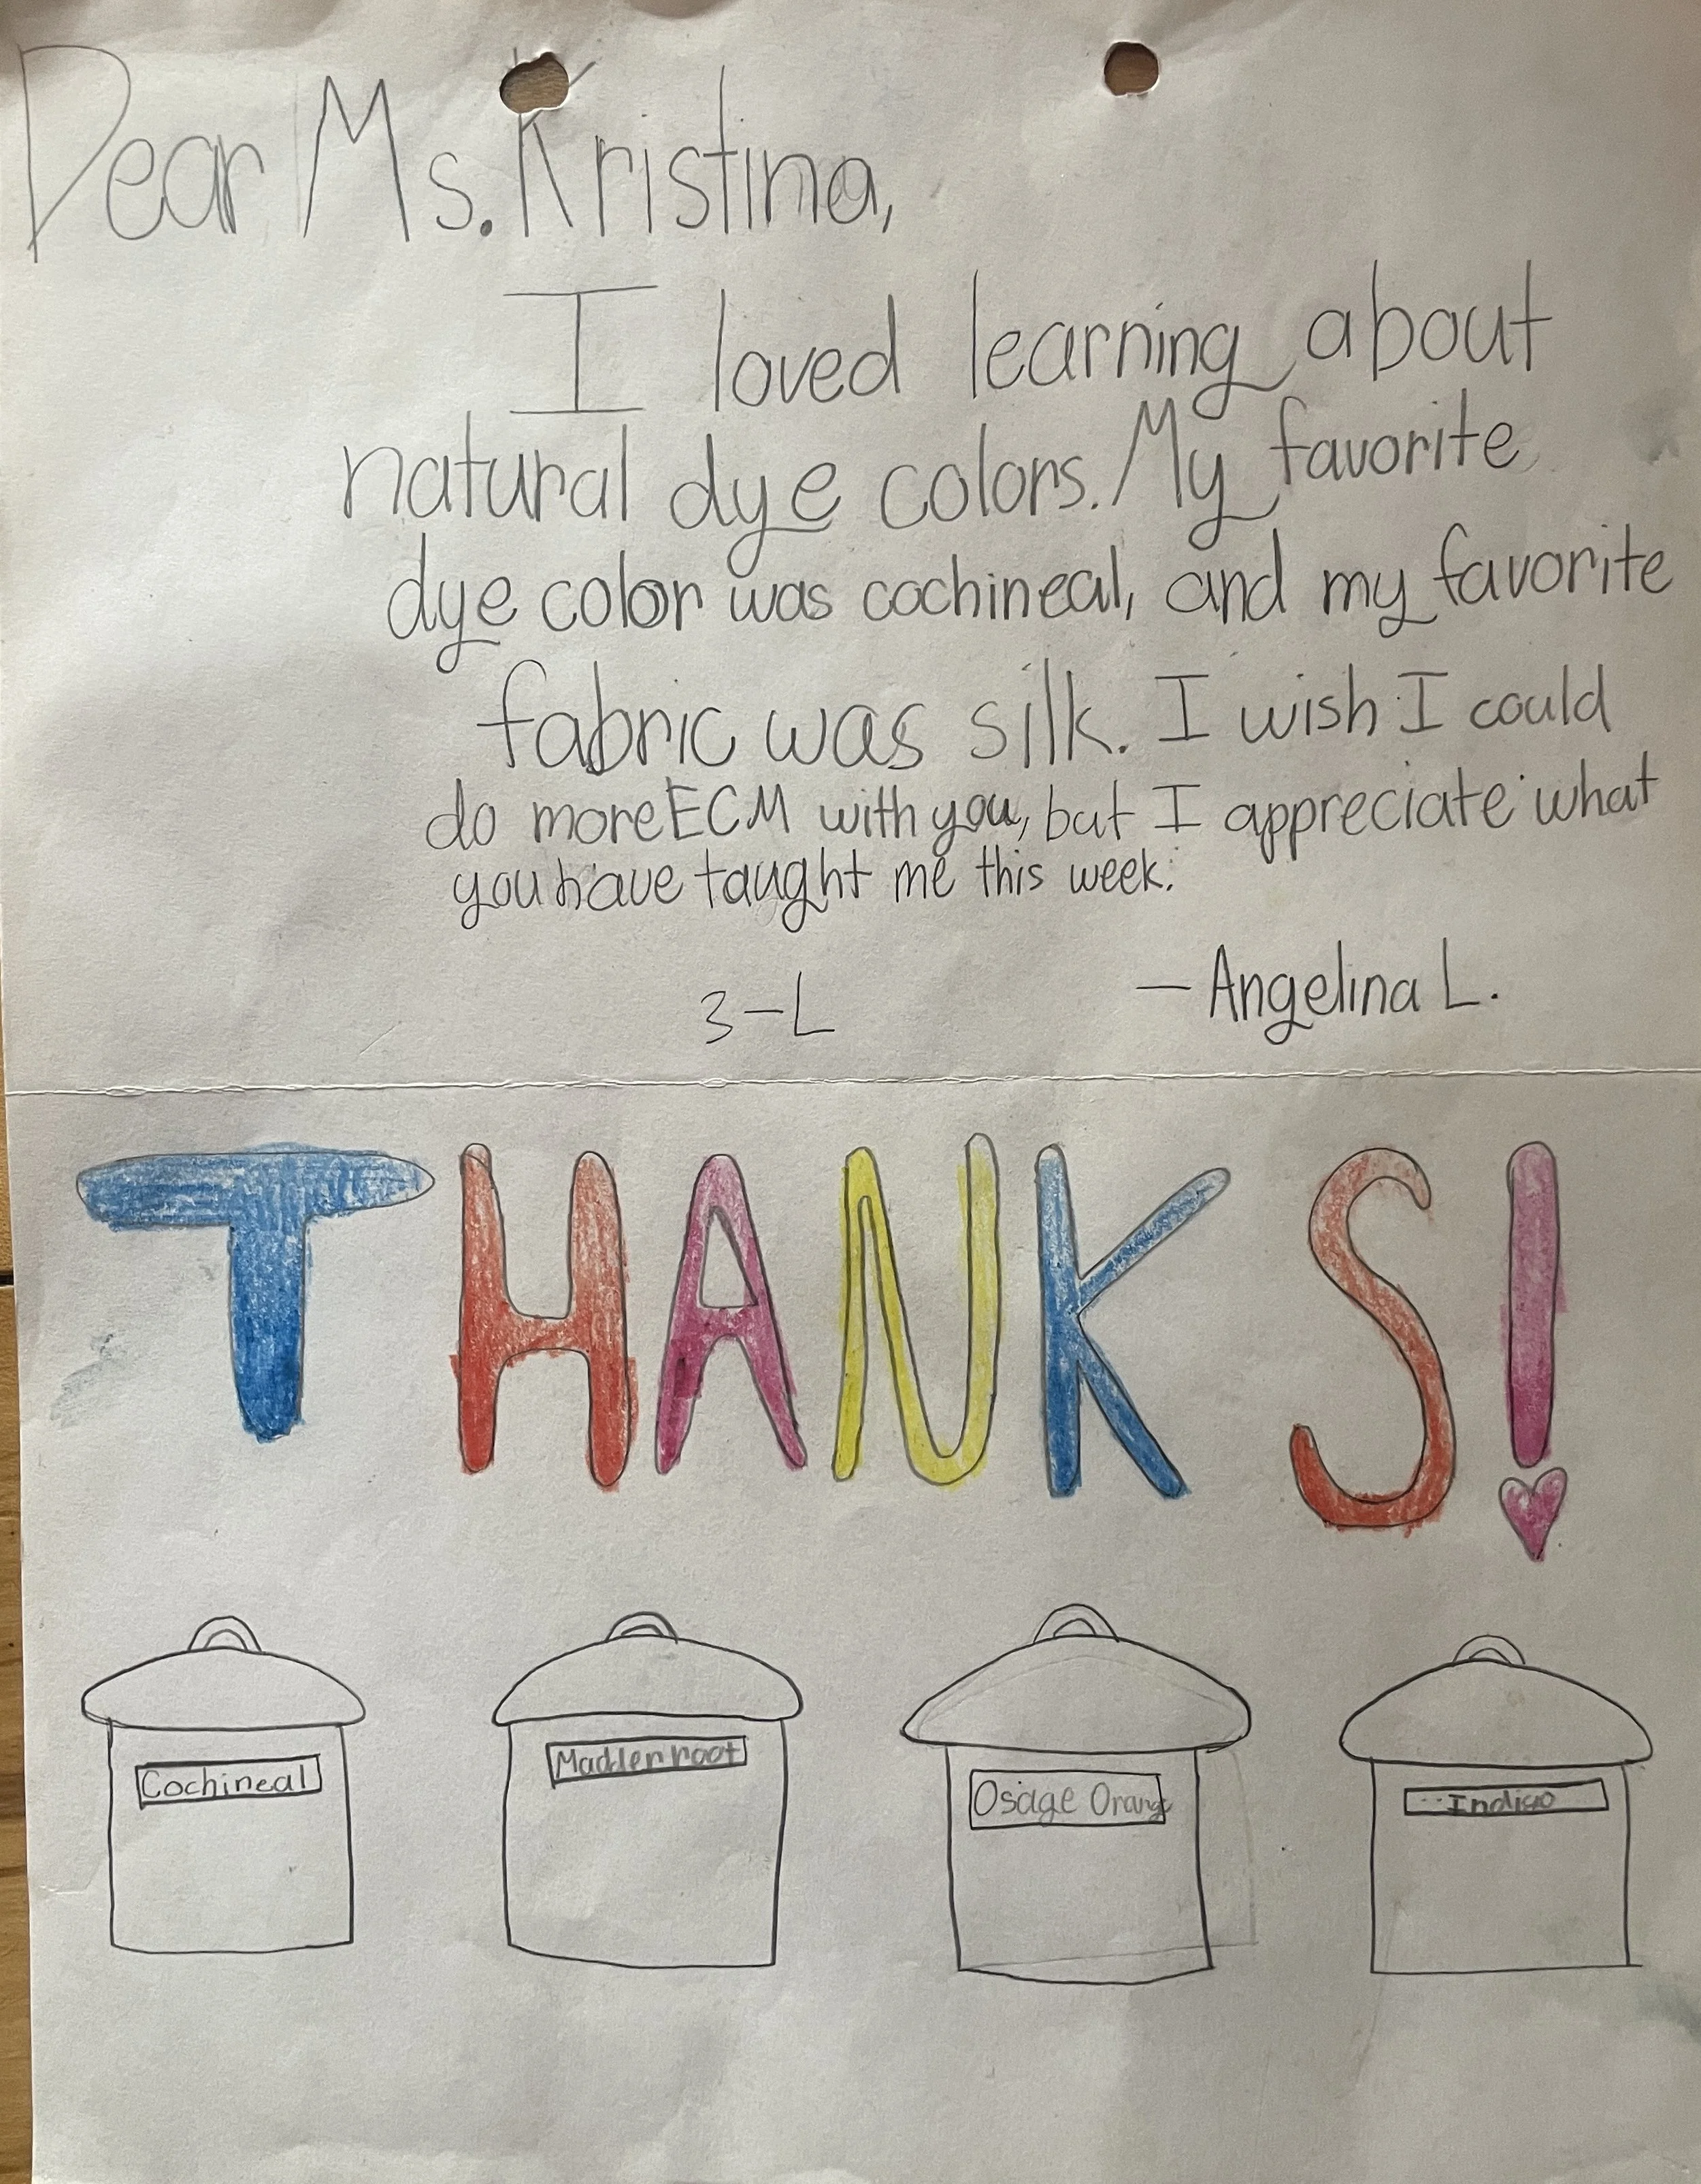 Dear Ms. Kristina,
I loved learning about
natural dye colors. My favorite
dye color was cochineal, and my favorite
fabric was silk. I wish I could
do more ECM with you, but I appreciate what
you have taught me this week.
3-L — Angelina L.
THANKS!
Cochineal Madder root Osage Orange Indigo